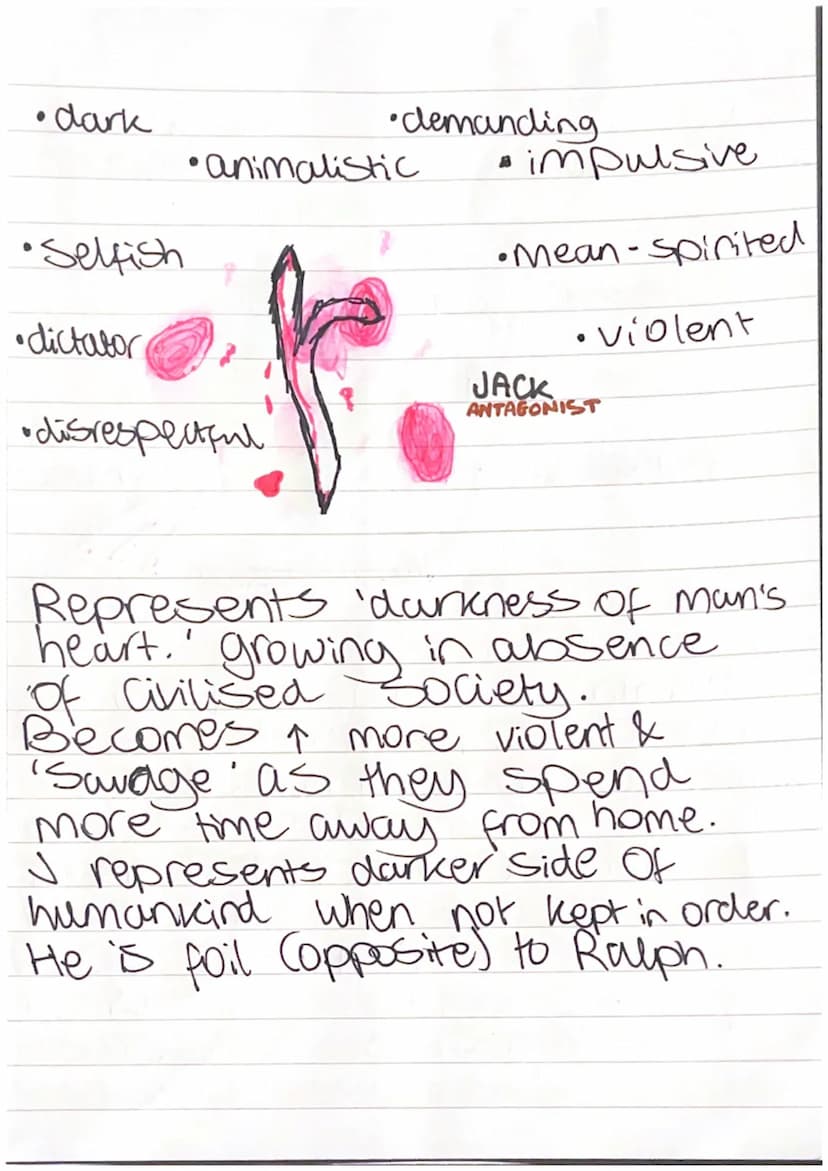 • dark
• demanding
• animalistic
• impulsive
• Selfish
• mean-spirited
• dictator
• violent
JACK
ANTAGONIST
• disrespectful
Represents 'darkness of man's
heart.' growing in absence
of civilised society.
Becomes ↑ more violent &
'savage' as they spend
more time away from home.
J represents darker side of
humankind when not kept in order.
He is foil (opposite) to Ralph.